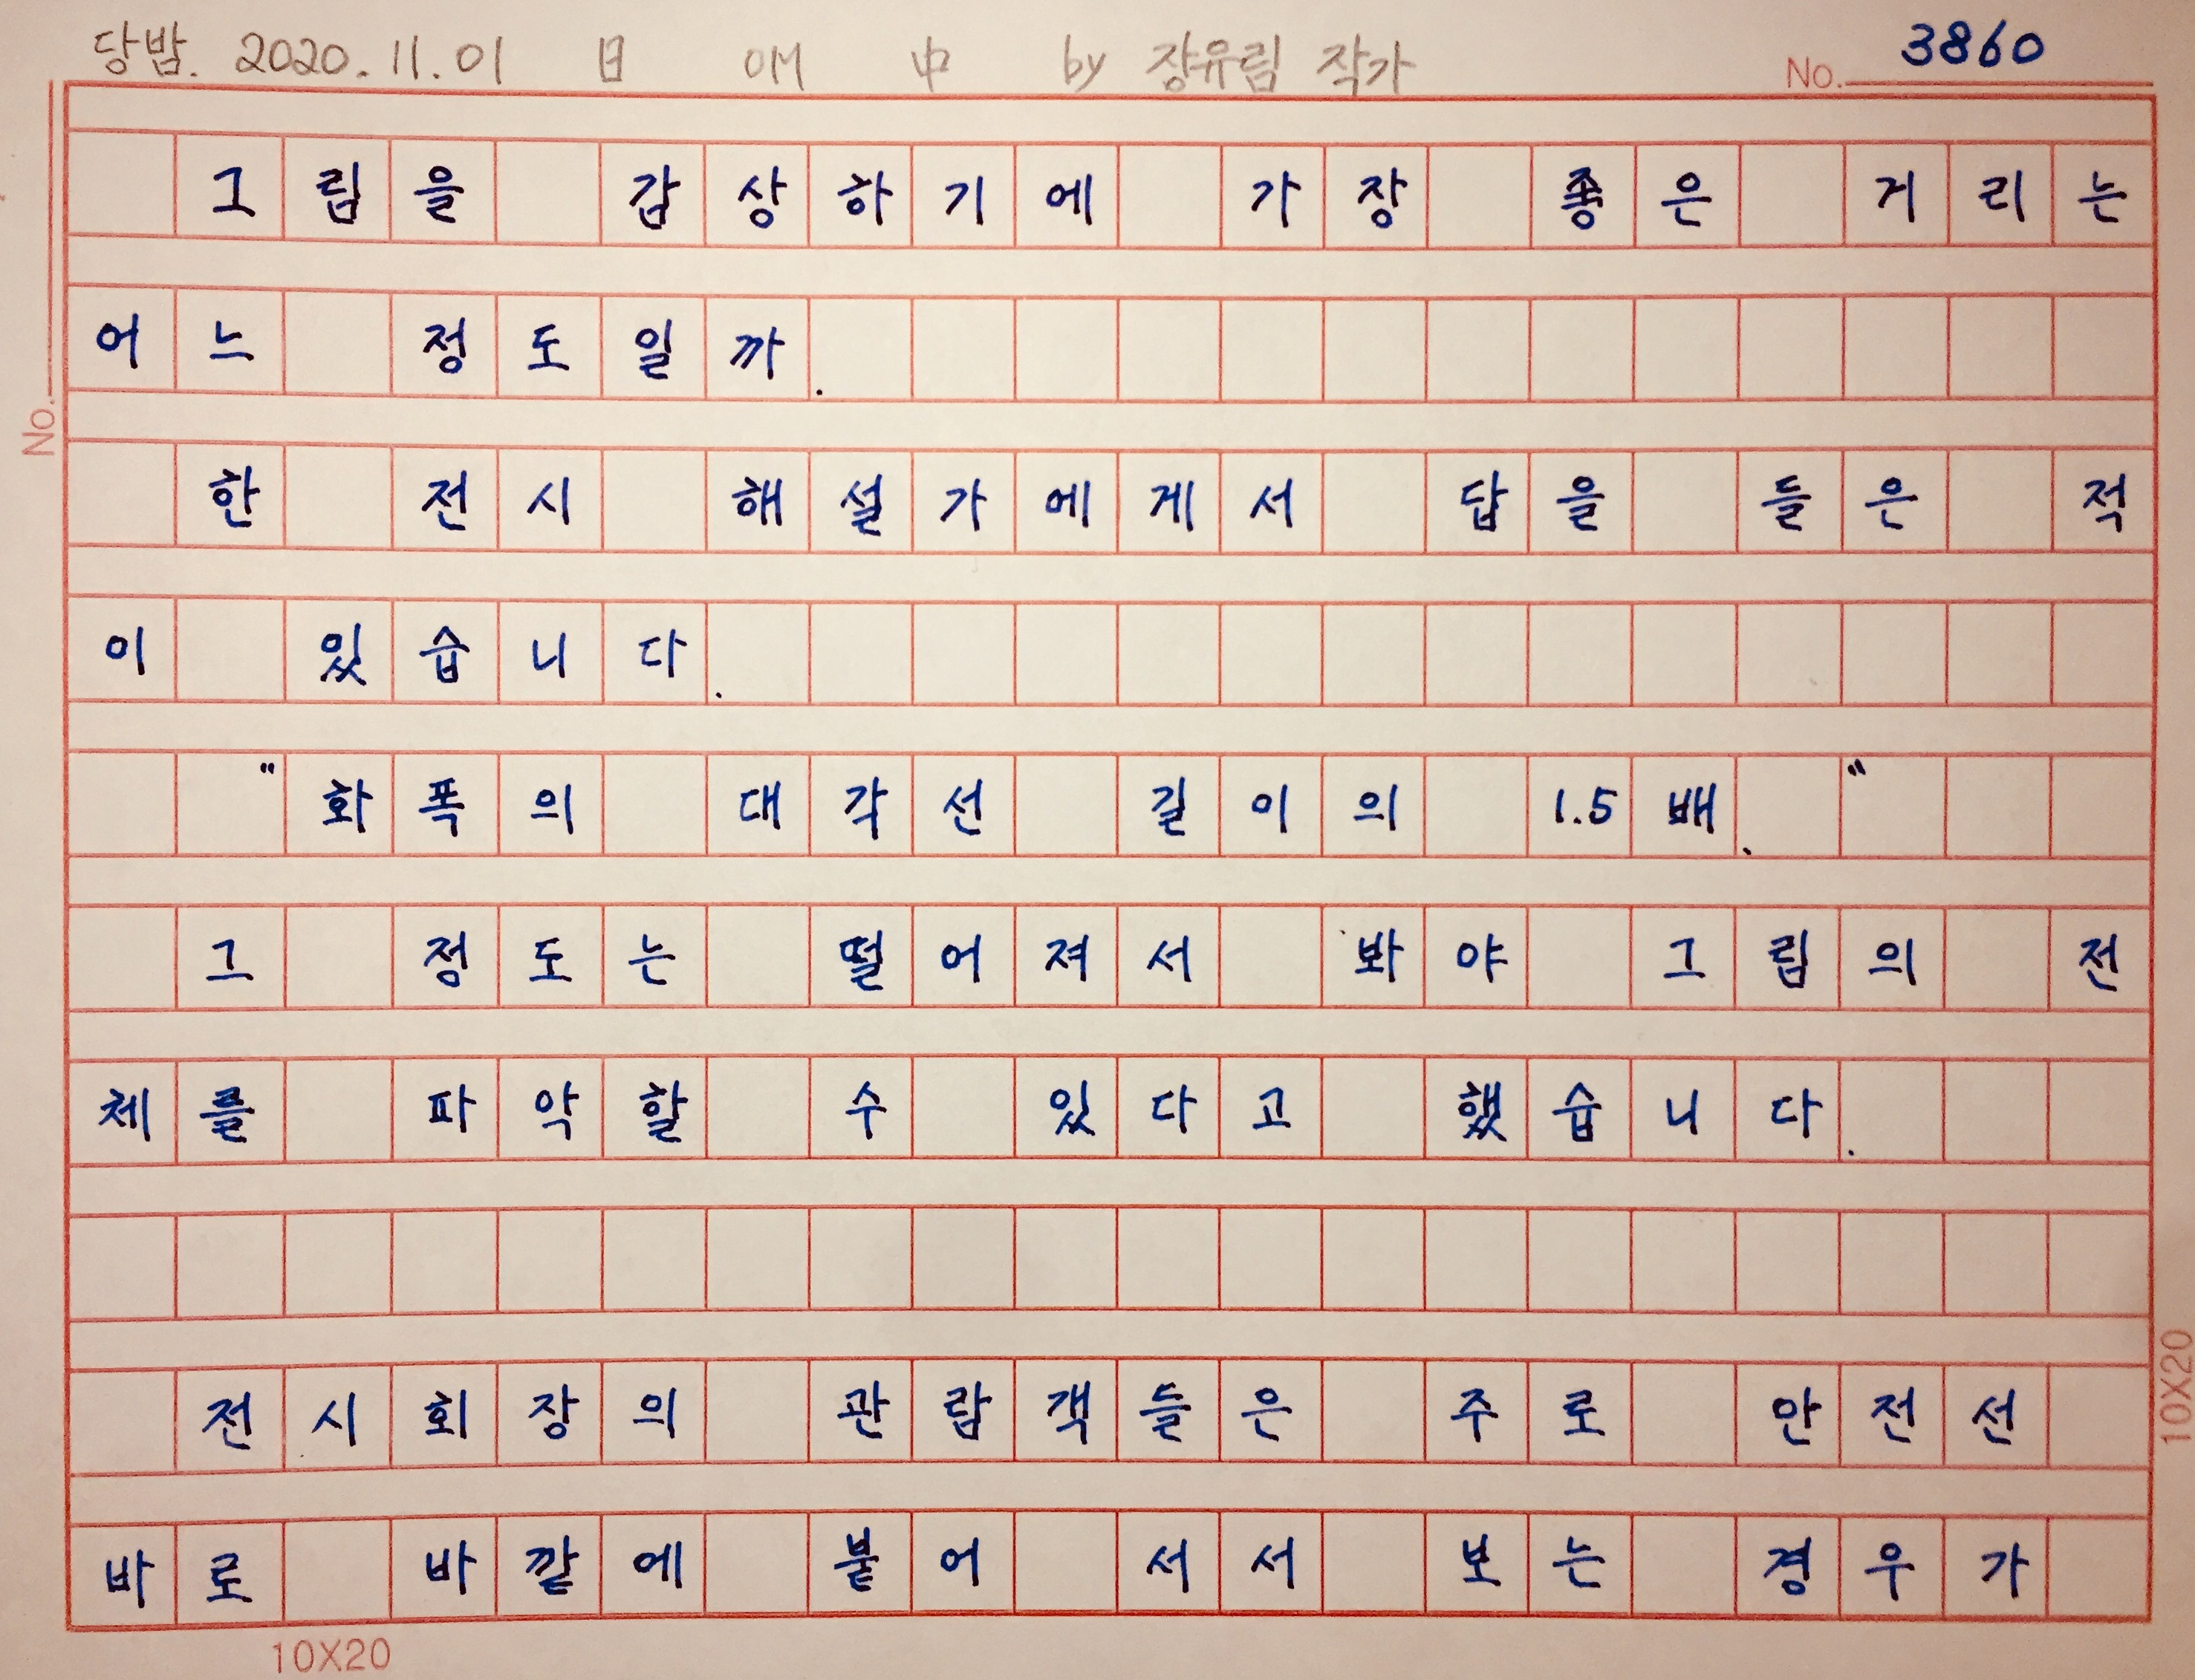 당밤. 2020.11.01 日 에 中 by 장유림 작가 No. 3860
그림을 감상하기에 가장 좋은 거리는
어느 정도일까.
No.
한 전시 해설가에게서 답을 들은 적
이 있습니다.
"화폭의 대각선 길이의 1.5배."
그 정도는 떨어져서 봐야 그림의 전
체를 파악할 수 있다고 했습니다.
전시회장의 관람객들은 주로 안전선
바로 바깥에 붙어 서서 보는 경우가
10X20
10X20